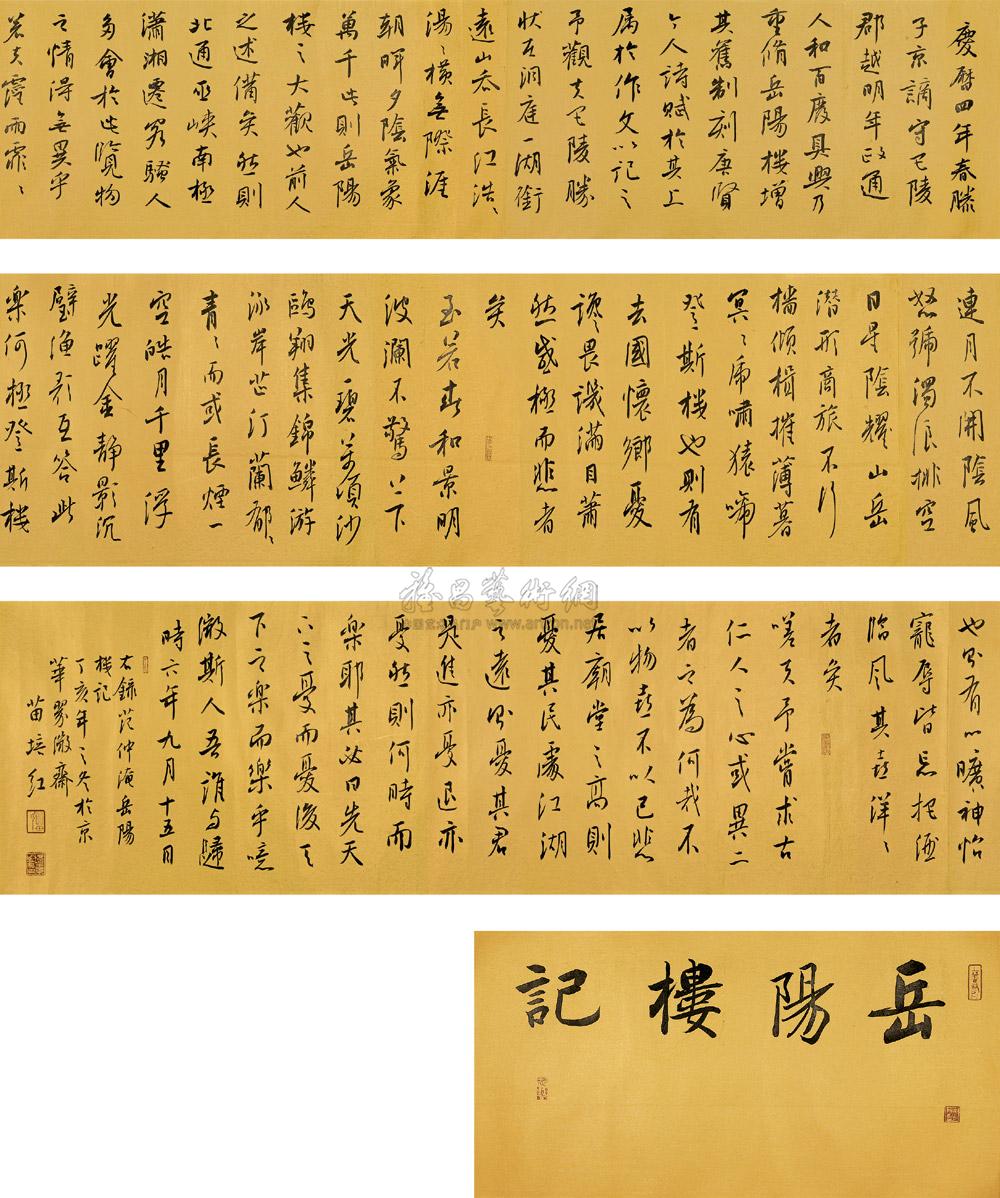 慶曆四年春滕
子京謫守巴陵
郡越明年政通
人和百廢具興乃
重脩岳陽樓增
其舊制刻唐賢
今人詩賦於其上
属於作文以記之
予觀夫巴陵勝
狀在洞庭一湖銜
遠山吞長江浩〻
湯〻橫無際涯
朝暉夕陰氣象
萬千此則岳陽
樓之大觀也前人
之述備矣然則
北通巫峽南極
瀟湘遷客騷人
多會於此覽物
之情得無異乎
若夫霪雨霏〻
連月不開陰風
怒號濁浪排空
日星隱耀山岳
潛形商旅不行
檣傾楫摧薄暮
冥〻虎嘯猿啼
登斯樓也則有
去國懷鄉憂
讒畏譏滿目蕭
然感極而悲者
矣
至若春和景明
波瀾不驚上下
天光一碧萬頃沙
鷗翔集錦鱗游
泳岸芷汀蘭郁〻
青〻而或長煙一
空皓月千里浮
光躍金靜影沉
璧漁歌互答此
樂何極登斯樓
也則有心曠神怡
寵辱皆忘把酒
臨風其喜洋〻
者矣
嗟夫予嘗求古
仁人之心或異二
者之為何哉不
以物喜不以己悲
居廟堂之高則
憂其民處江湖
之遠則憂其君
是進亦憂退亦
憂然則何時而
樂耶其必曰先天
下之憂而憂後天
下之樂而樂乎噫
微斯人吾誰與歸
時六年九月十五日
右錄范仲淹岳陽
樓記
丁亥年之冬於京
華翠微齋
苗培红
雅昌藝術網
www.artron.net
岳陽樓記